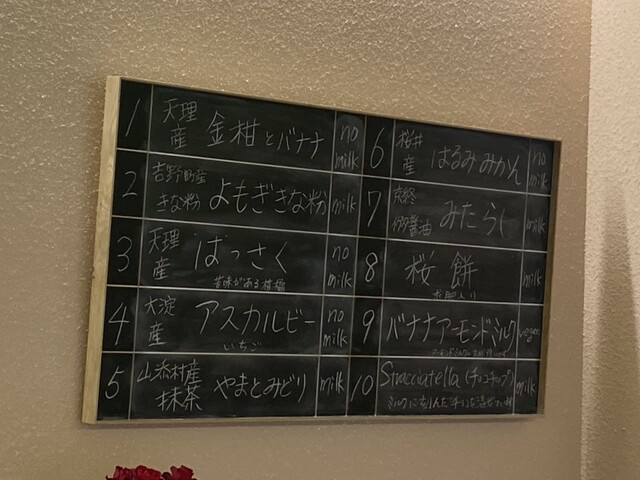 1 天理産 金柑とバナナ no milk
2 吉野町産きな粉 よもぎきな粉 milk
3 天理産 はっさく no milk
苦味がある柑橘
4 大淀産 アスカルビー no milk
いちご
5 山添村産抹茶 やまとみどり milk
6 桜井産 はるみみかん no milk
7 醤油 みたらし milk
8 桜餅 milk
9 バナナアーモンドミルク vegan
10 Stracciatella (チョコチップ) milk
ミルクに刻んだチョコを混ぜています